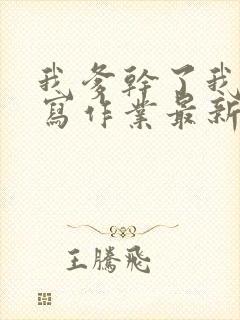 我爹幹了我
寫作業最新
王騰飛